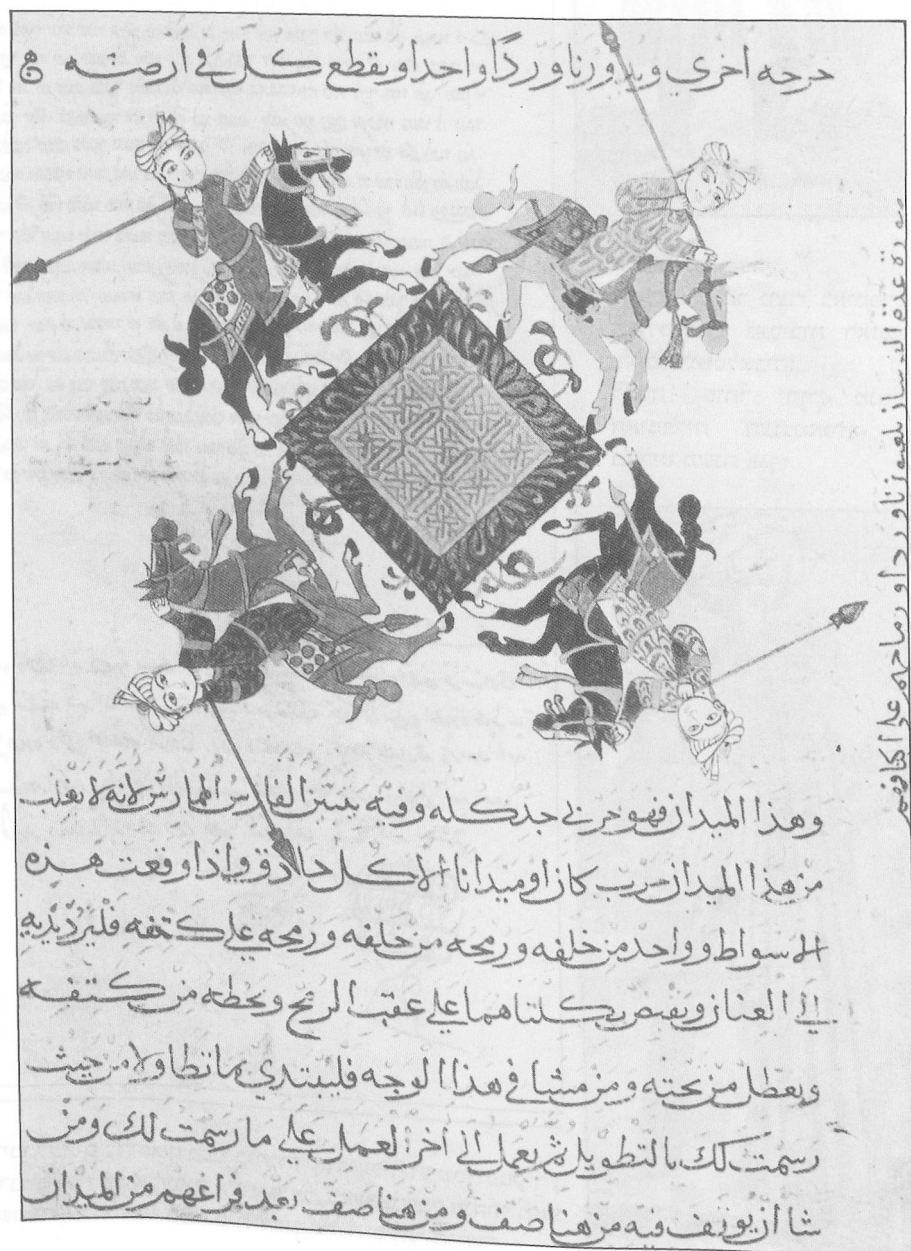 خرجه اخري ويدورنا وردًا واحدا ويقطع كل في ارضه
وهذا الميدان فهو حربي جد كله وفيه يبين الفارس الممارس لانه لا يغلب
من هذا الميدان حرب كان او ميدانا الا كل حاذق واذا وقعت هذه
الاسواط وواحد من خلفه ورمحه من خلفه ورمحه علي كتفه فليرد يديه
الي العنان ويقبض بكلتاهما علي عقب الرمح ويحطه من كتفه
ويعطل من تحته ومن مشا في هذا الوجه فليبتدي ما تطاولا من حيث
رسمت لك بالتطويل ثم يعمل الي اخر العمل علي ما رسمت لك ومن
شا ان يوقف فيه من هنا صف ومن هنا صف بعد فراغهم من الميدان